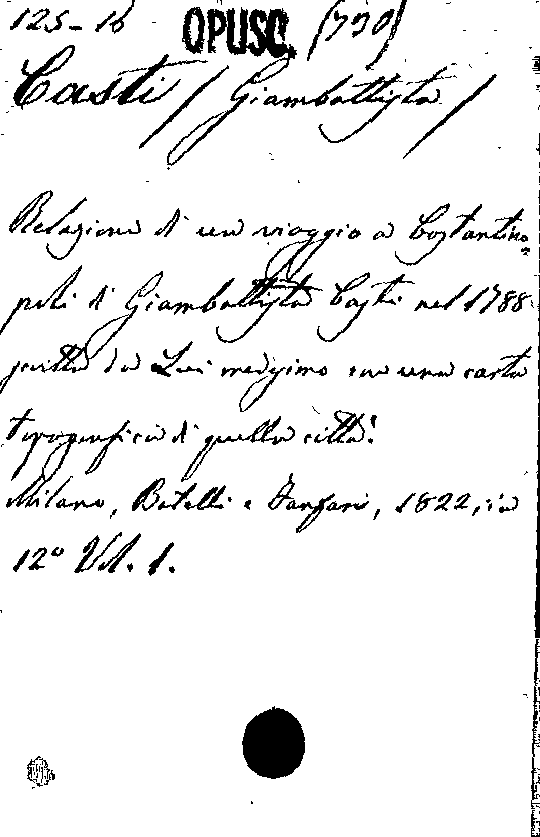 125-16 OPUSC. (730)
Casti / Giambattista /
Relazione di un viaggio a Costantino
poli di Giambattista Casti nel 1788
scritta da Lui medesimo con una carta
topografica di quella città.
Milano, Batelli e Fanfani, 1822, in
12º Vol. 1.